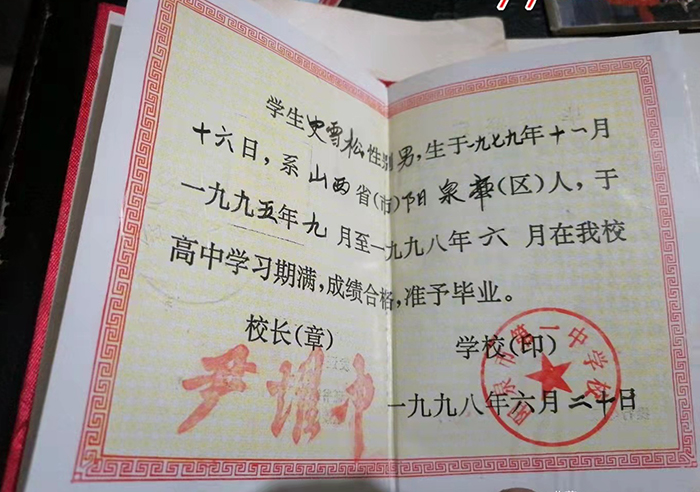 学生史雪松,性别男,生于一九七九年十一月
十六日,系山西省(市)阳泉郊(区)人,于
一九九五年九月至一九九八年六月在我校
高中学习期满,成绩合格,准予毕业。
校长(章)
学校(印)
阳泉市第一中学校
一九九八年六月二十日